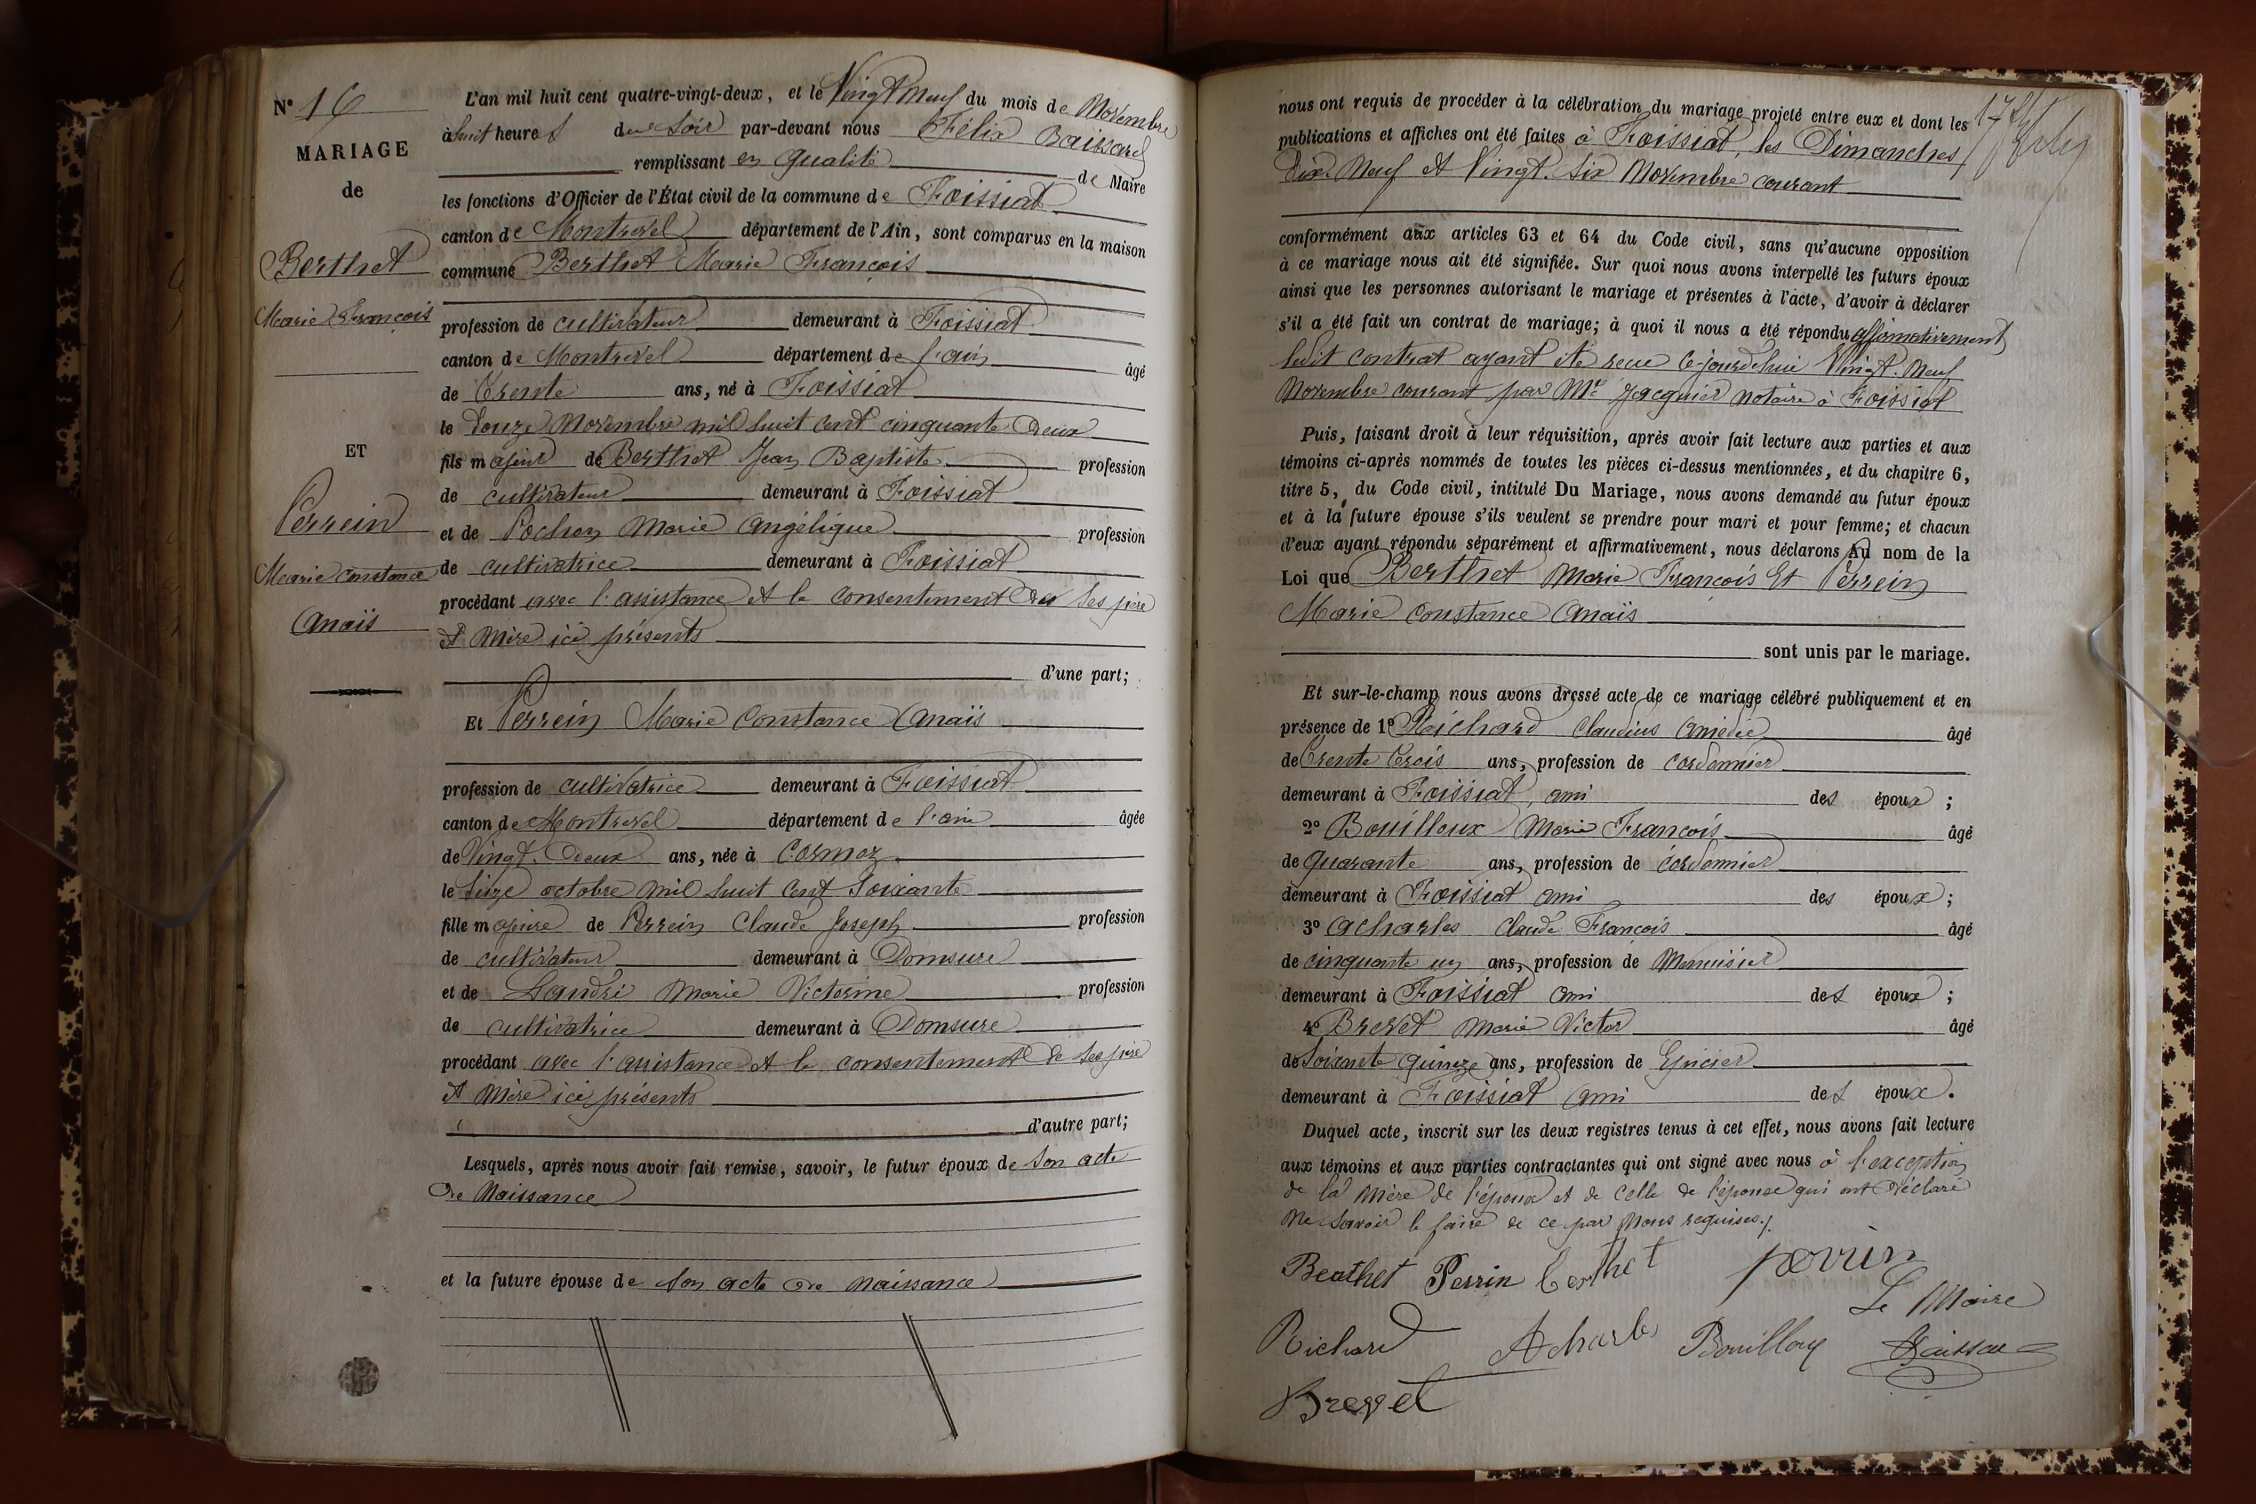 N° 16
MARIAGE
de
Berthet
Marie François
ET
Perrein
Marie Constance
Anaïs
L'an mil huit cent quatre-vingt-deux, et le Vingt Neuf du mois de Novembre
à huit heures du soir par-devant nous Félix Baissard
remplissant en qualité de Maire
les fonctions d'Officier de l'État civil de la commune de Foissiat
canton de Montrevel département de l'Ain, sont comparus en la maison
commune Berthet Marie François
profession de cultivateur demeurant à Foissiat
canton de Montrevel département de l'ain âgé
de Trente ans, né à Foissiat
le douze Novembre mil huit cent cinquante Deux
fils majeur de Berthet Jean Baptiste profession
de cultivateur demeurant à Foissiat
et de Pochon Marie Angélique profession
de cultivatrice demeurant à Foissiat
procédant avec l'assistance et le consentement de ses père
et Mère ici présents
d'une part;
Et Perrein Marie Constance Anaïs
profession de cultivatrice demeurant à Foissiat
canton de Montrevel département de l'ain âgée
de Vingt-Deux ans, née à Cormoz
le Seize octobre mil huit cent soixante
fille majeure de Perrein Claude Joseph profession
de cultivateur demeurant à Domsure
et de Landré Marie Victorine profession
de cultivatrice demeurant à Domsure
procédant avec l'assistance et le consentement de ses père
et Mère ici présents
d'autre part;
Lesquels, après nous avoir fait remise, savoir, le futur époux de son acte
de Naissance
et la future épouse de son acte de naissance
nous ont requis de procéder à la célébration du mariage projeté entre eux et dont les
publications et affiches ont été faites à Foissiat, les Dimanches
Dix-Neuf et Vingt-Six Novembre courant
conformément aux articles 63 et 64 du Code civil, sans qu'aucune opposition
à ce mariage nous ait été signifiée. Sur quoi nous avons interpellé les futurs époux
ainsi que les personnes autorisant le mariage et présentes à l'acte, d'avoir à déclarer
s'il a été fait un contrat de mariage; à quoi il nous a été répondu affirmativement
ledit contrat ayant été recu cejourd'hui Vingt-Neuf
Novembre courant par Me Jacquier notaire à Foissiat
Puis, faisant droit à leur réquisition, après avoir fait lecture aux parties et aux
témoins ci-après nommés de toutes les pièces ci-dessus mentionnées, et du chapitre 6,
titre 5, du Code civil, intitulé Du Mariage, nous avons demandé au futur époux
et à la future épouse s'ils veulent se prendre pour mari et pour femme; et chacun
d'eux ayant répondu séparément et affirmativement, nous déclarons Au nom de la
Loi que Berthet Marie François Et Perrein
Marie Constance Anaïs
sont unis par le mariage.
Et sur-le-champ nous avons dressé acte de ce mariage célébré publiquement et en
présence de 1° Richard Claudius Amédée âgé
de Trente Trois ans, profession de cordonnier
demeurant à Foissiat, ami des époux ;
2° Bouilloux Marie François âgé
de quarante ans, profession de cordonnier
demeurant à Foissiat ami des époux ;
3° Acharles Claude François âgé
de cinquante un ans, profession de Menuisier
demeurant à Foissiat ami des époux ;
4° Brevet Marie Victor âgé
de Soixante quinze ans, profession de Epicier
demeurant à Foissiat ami des époux.
Duquel acte, inscrit sur les deux registres tenus à cet effet, nous avons fait lecture
aux témoins et aux parties contractantes qui ont signé avec nous à l'exception
de la Mère de l'époux et de celle de l'épouse qui ont déclaré
Ne savoir le faire de ce par Nous requises./.
Berthet Perrin berthet perrin
Le Maire
Richard Acharles Bouilloux Baissard
Brevet